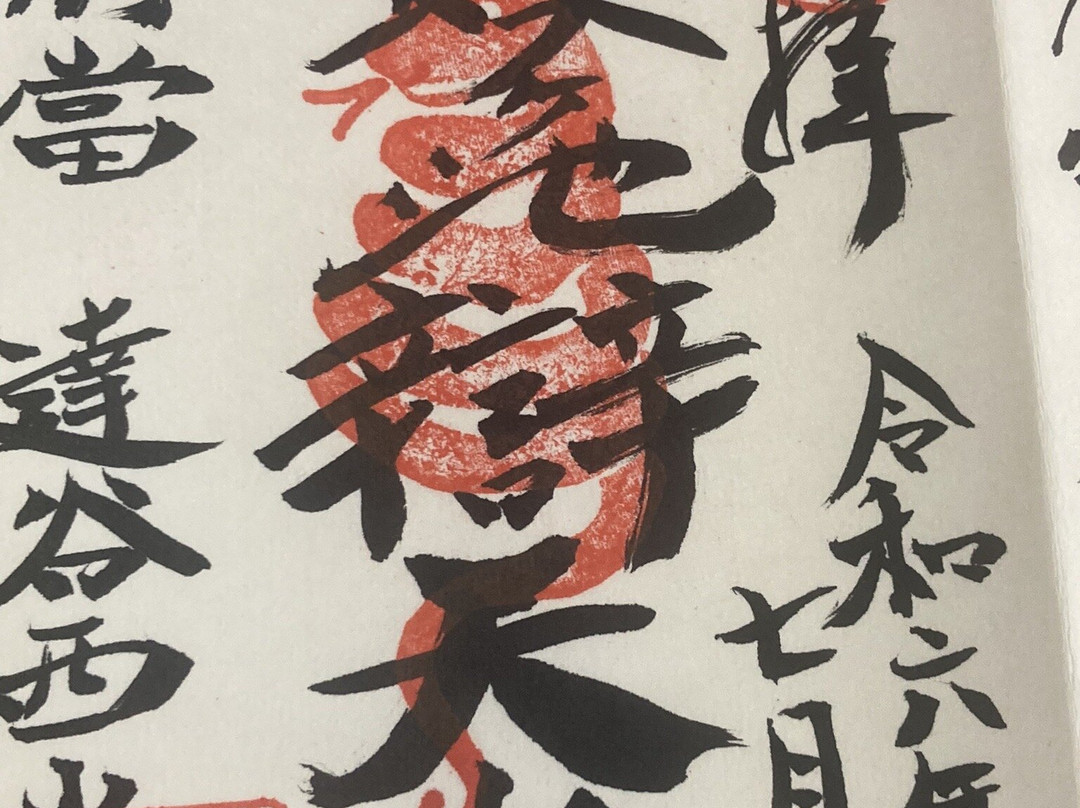 拝
令和六年
七月
ヶ池辯天
當 達谷西